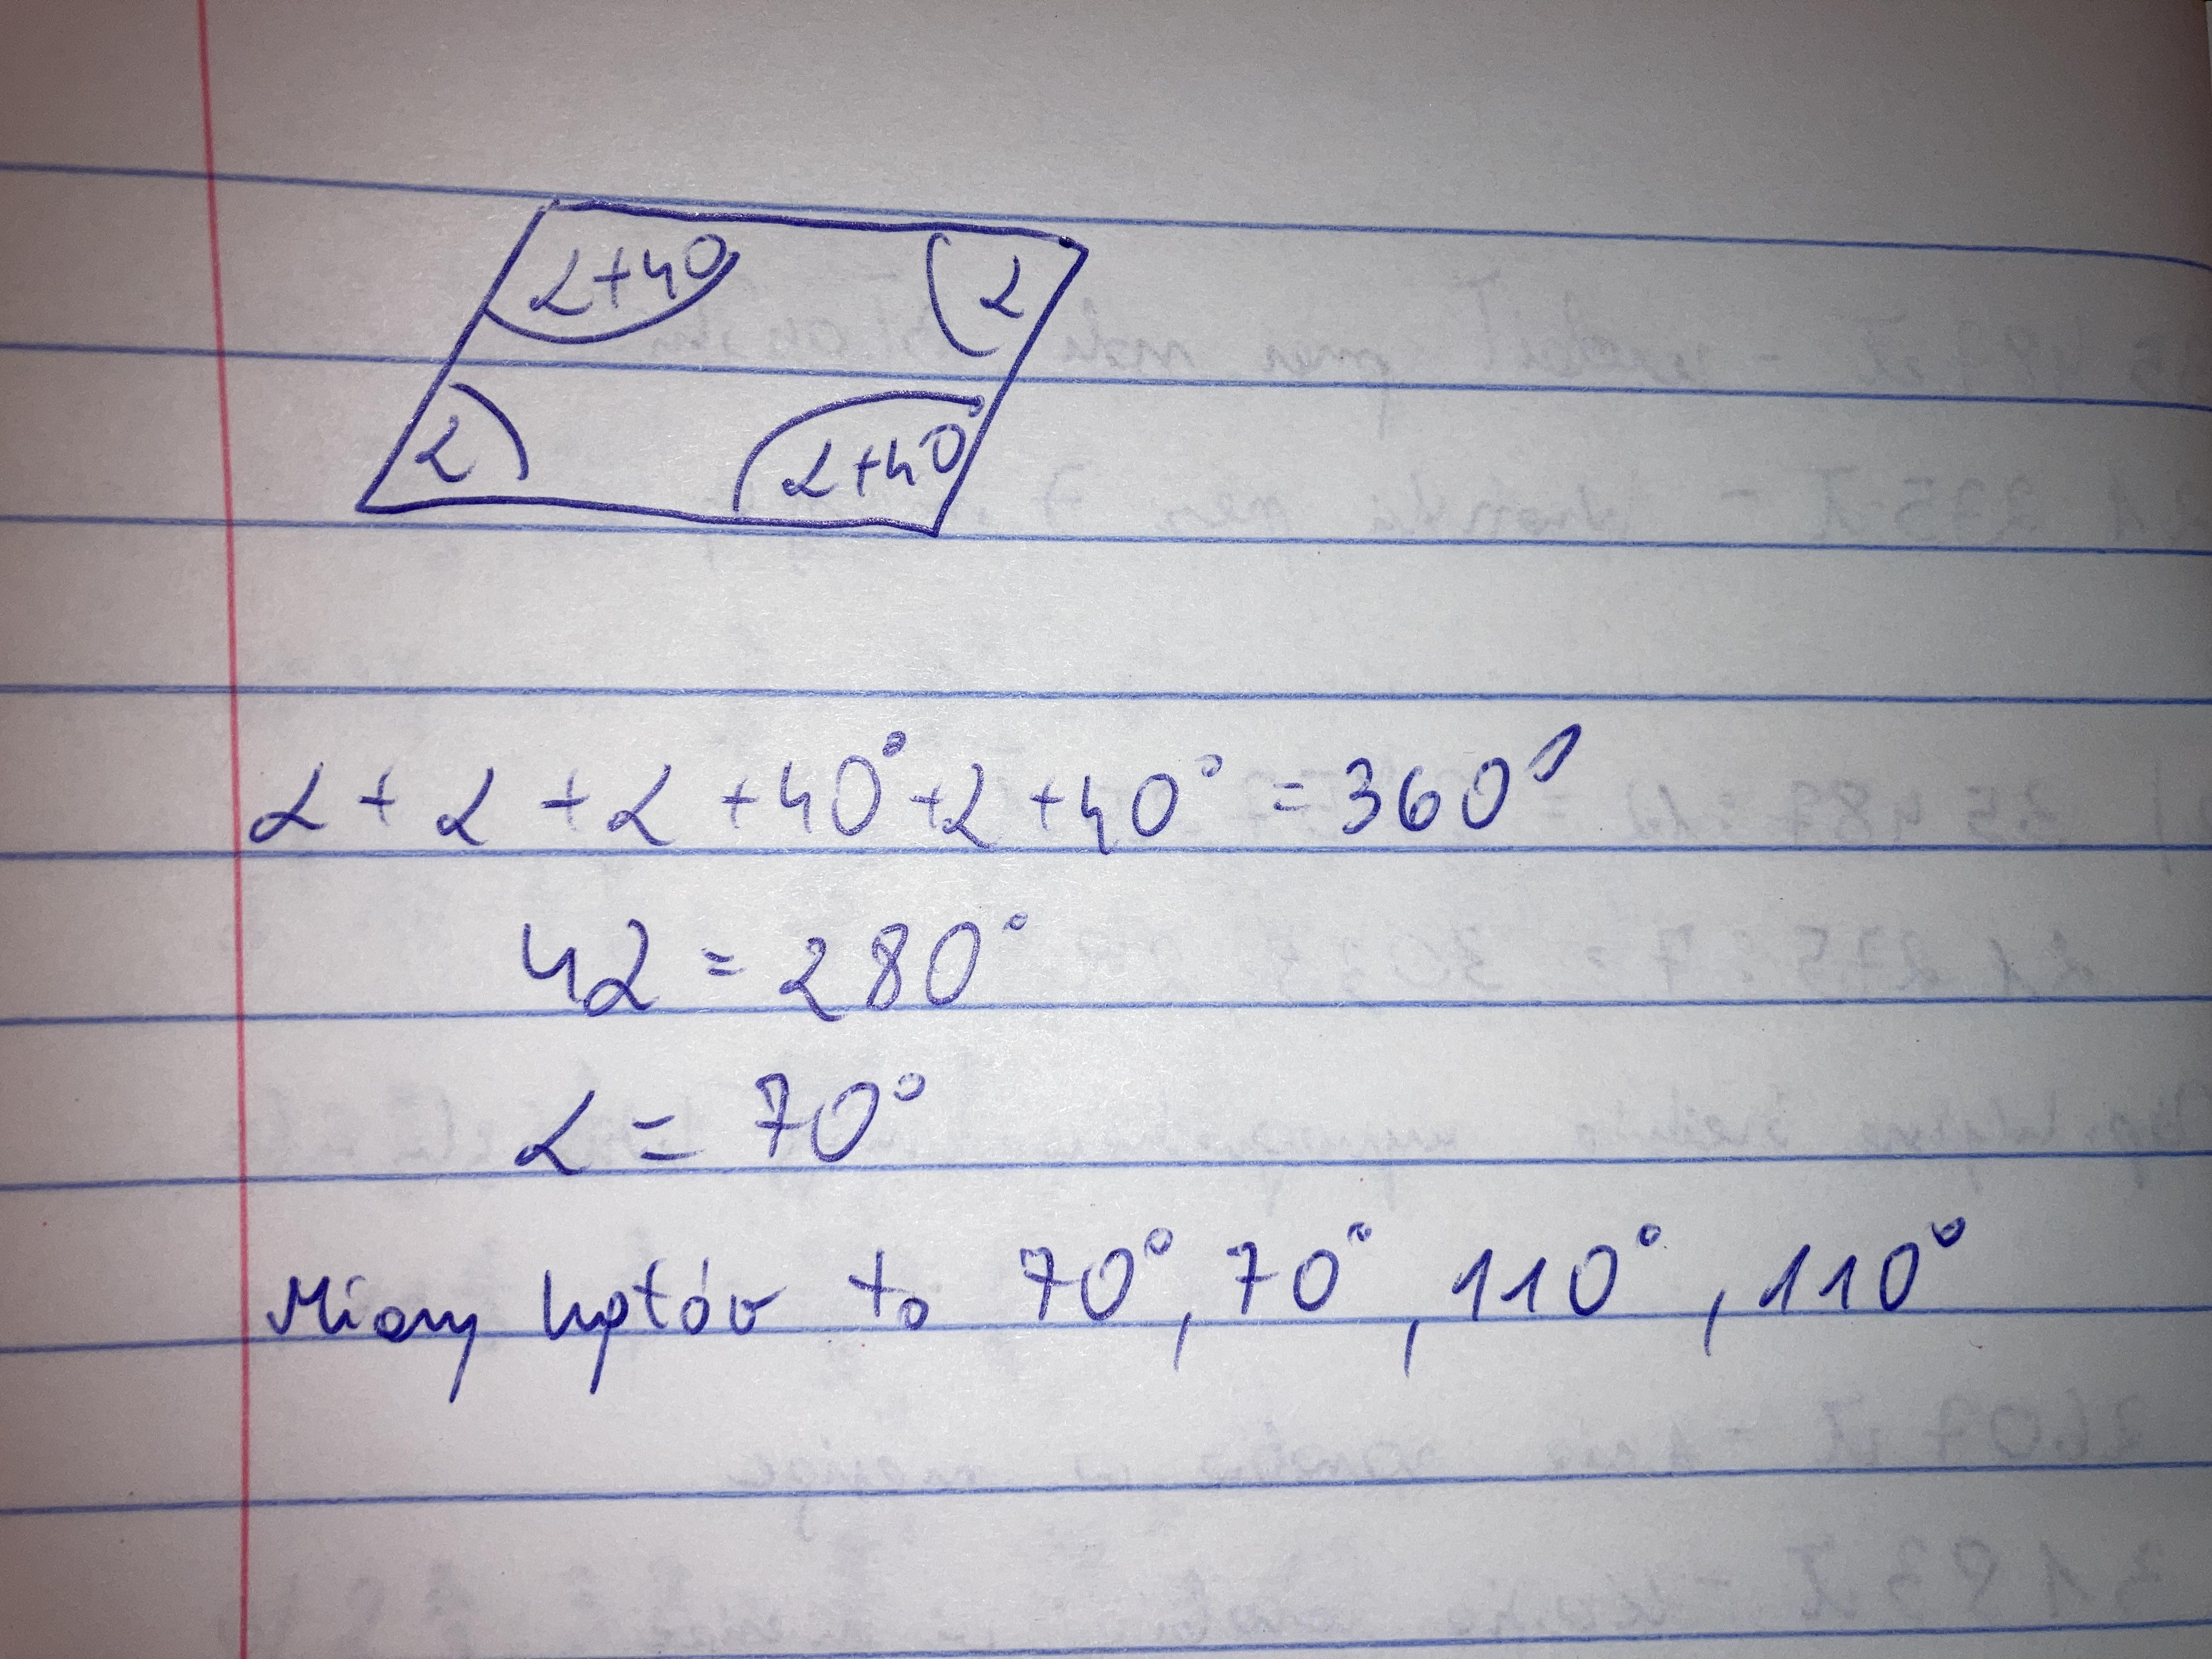 α+40° α
α α+40°
α + α + α + 40° + α + 40° = 360°
4α = 280°
α = 70°
Miary kątów to 70°, 70°, 110°, 110°